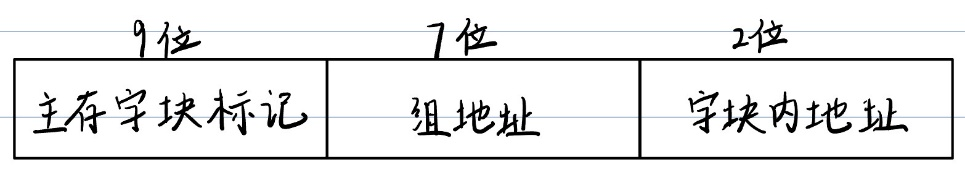 9位 7位 2位
主存字块标记 组地址 字块内地址